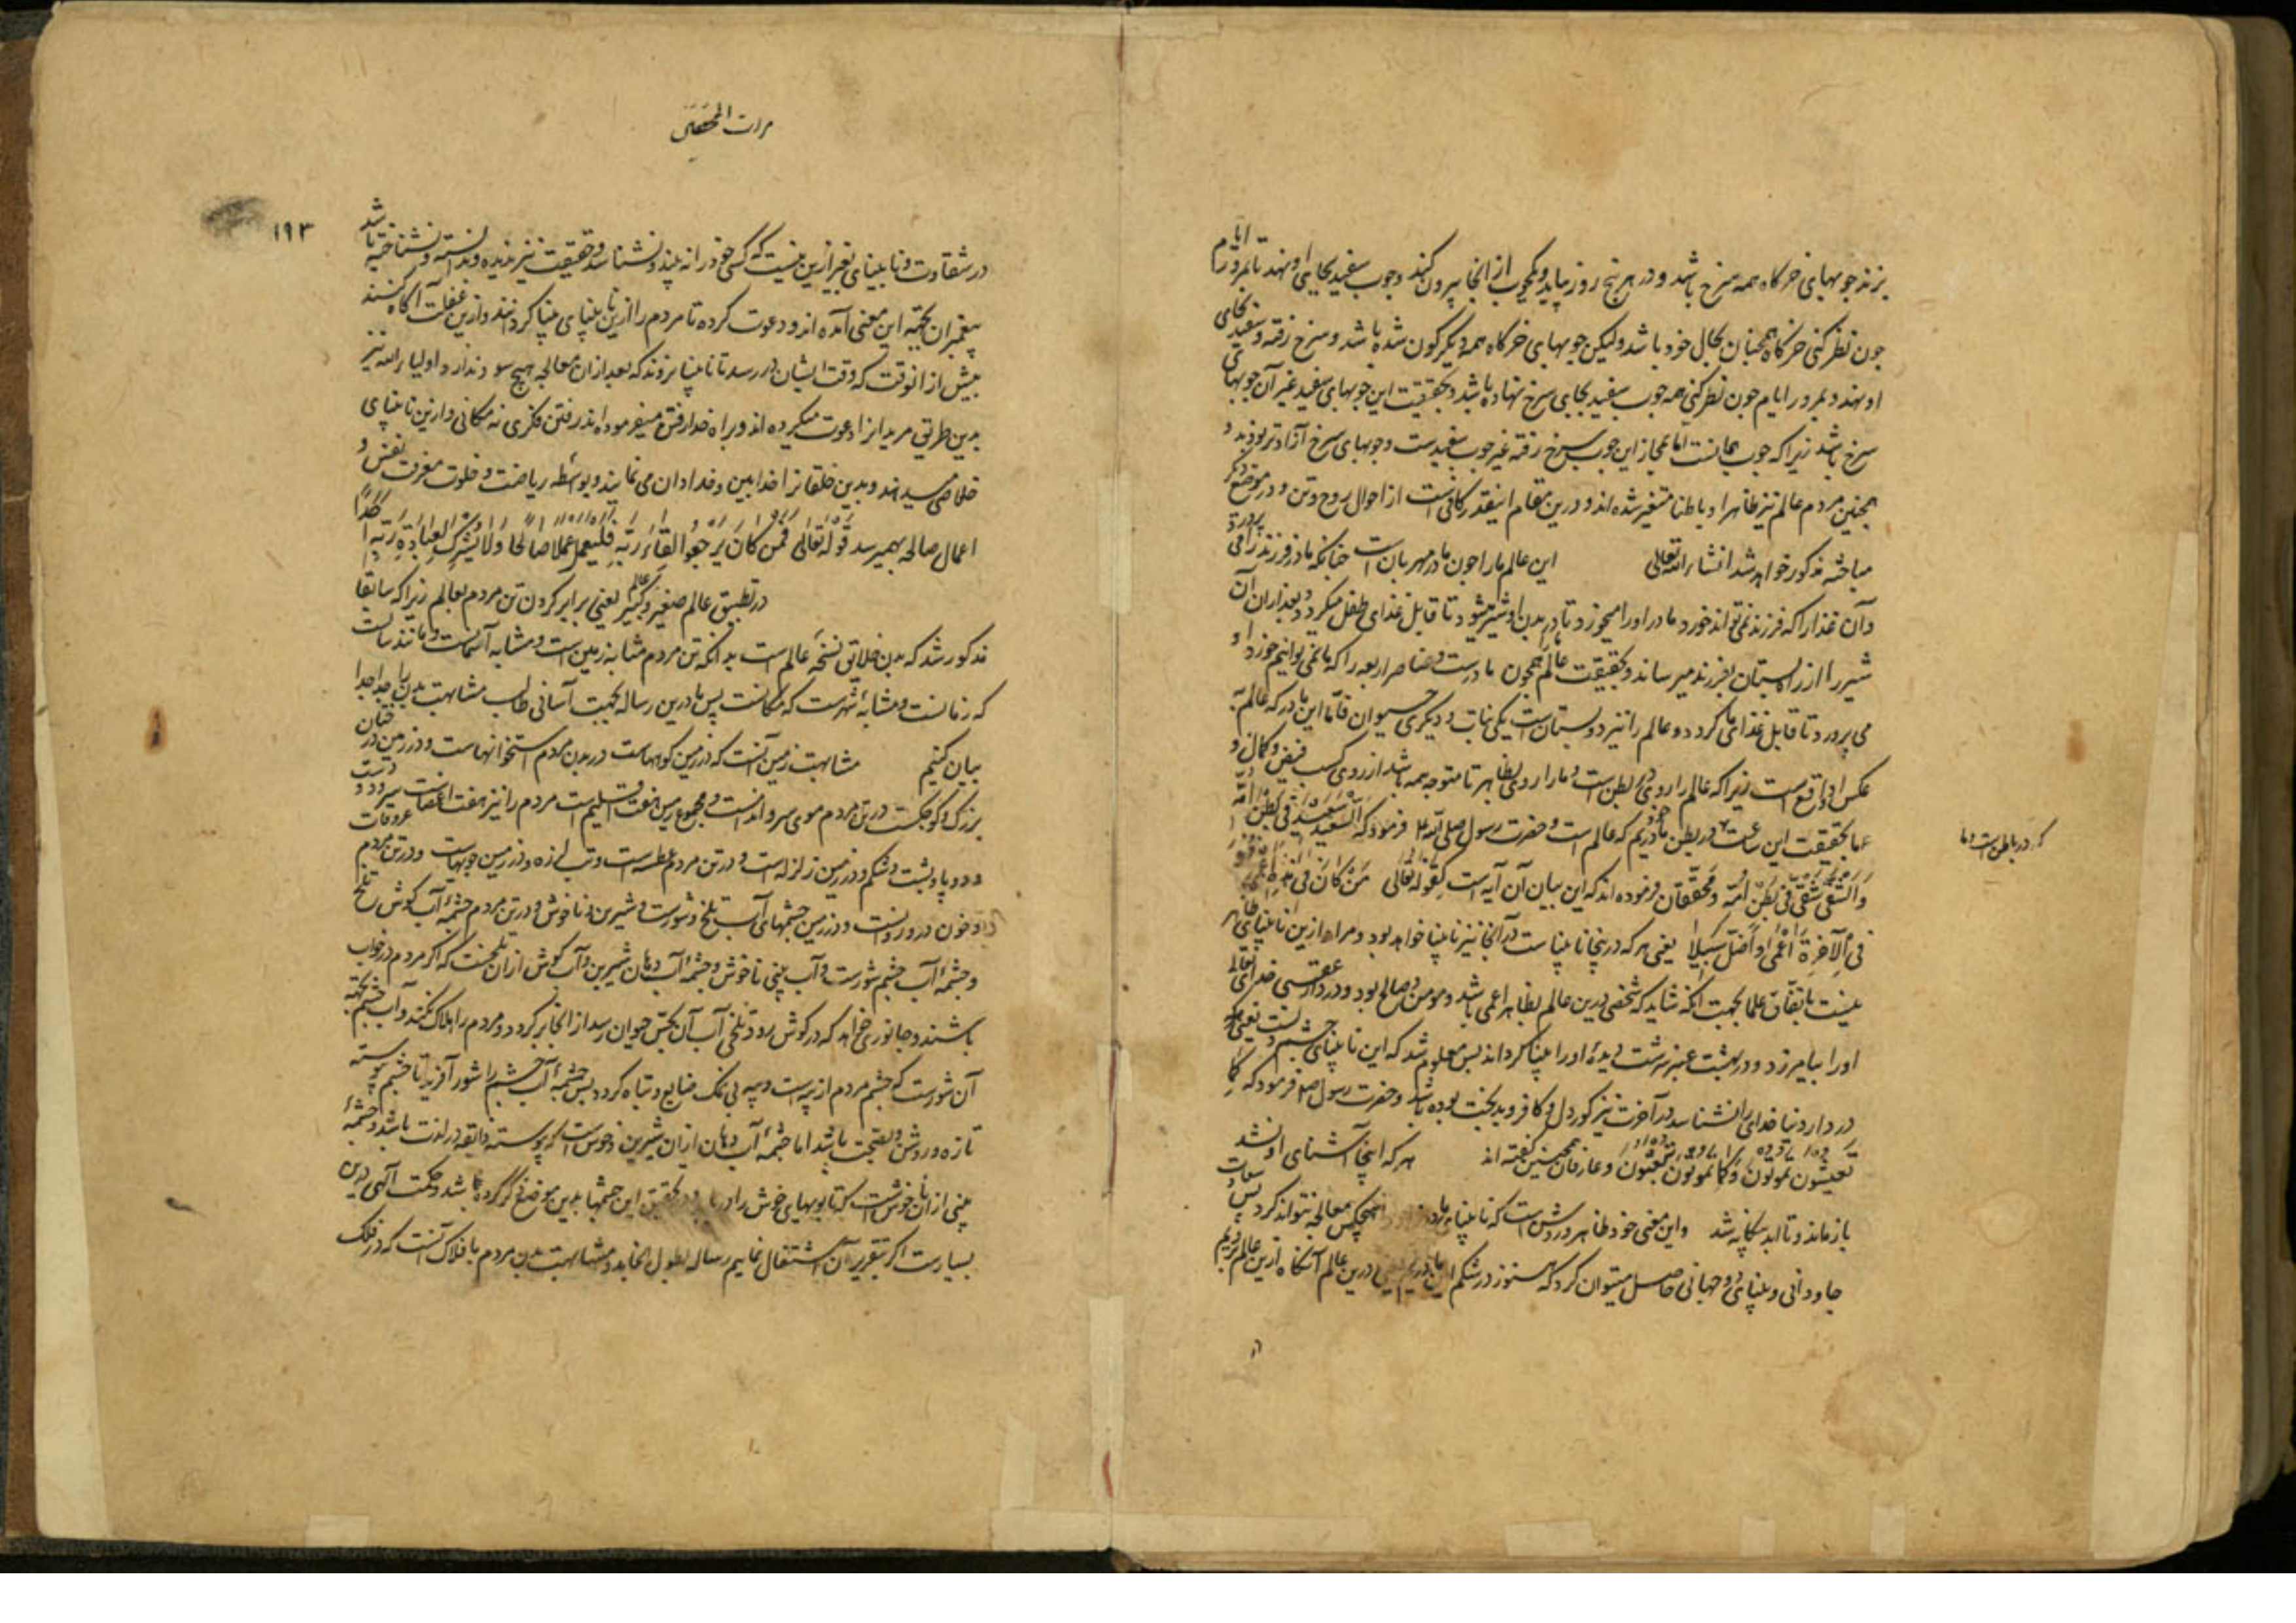 بزند جوبهای خرکاه همه سرخ باشد و در هر پنج روز بیاید و یکچوب از انجا بیرون کند وجوب سفید بجای او نهد تا بمرور ایام
چون نظر کنی خرکاه همچنان بحال خود باشد ولیکن جوبهای خرکاه همه دیکرکون شده باشد و سرخ رفته و سفید بجای
او نهند و بمرور ایام چون نظر کنی همه جوب سفید بجای سرخ نهاده باشد و بحقیقت این جوبهای سفید غیر آن جوبهای
سرخ باشد زیرا که جوب همانست اما بمجاز این جوب سرخ رفته غیر جوب سفیدست وجوبهای سرخ آزادتر بودند و
همچنین مردم عالم نیز ظاهرا و باطنا متغیر شده اند و درین مقام اینقدر کافیست از احوال روح و تن و در موضع دکر
مباحثه مذکور خواهد شد انشاء الله تعالی این عالم مارا چون مادر مهربان است چنانکه مادر فرزند را می پرورد
و آن غذا را که فرزند نمی تواند خورد مادر او را میخورد تا در بدن او شیر میشود تا قابل غذای طفل میکردد و بعد از ان آن
شیر را از راه پستان بفرزند میرساند و بحقیقت عالم همچون مادرست و عناصر اربعه را که ما نمی توانیم خورد او
می پرورد تا قابل غذای ما کردد و عالم را نیز دو پستان است یکی نبات و دیکری حیوان فاما این مادر که عالم به
عکس او واقع است زیرا که عالم را روی در بطن است و ما را روی بظاهر تا متوجه همه باشد از روی کسب فیض و کمال و
که در باطن است و ما
ما بحقیقت این ساعت در بطن مادریم که عالم است و حضرت رسول صلی الله فرمود که السعید سعید فی بطن امه
والشقی شقی فی بطن امه و محققان فرموده اند که این بیان آن آیه است کقوله تعالی من کان فی هذه اعمی فهو
فی الآخرة اعمی و اضل سبیلا یعنی هر که درینجا نابیناست در آنجا نیز نابینا خواهد بود و مراد ازین نابینای ظاهر
نیست باتفاق علما بجهت آنکه شاید که شخصی درین عالم بظاهر اعمی باشد و مومن و صالح بود و در دار عقبی خدای تعالی
او را بیامرزد و در بهشت عنبر سرشت دیدهٔ او را بینا کرداند پس معلوم شد که این نابینای چشم نیست یعنی هر که
در دار دنیا خدای را نشناسد در آخرت نیز کور دل و کافر و بدبخت بوده باشد و حضرت رسول صلعم فرمود که کما
تعیشون تموتون و کما تموتون تبعثون و عارفان همچنین کفته اند هر که اینجا آشنای او نشد
باز ماند و تا ابد بیکانه شد واین معنی خود ظاهر و روشن است که نابینایه مادر هیچکس معالجه نتواند کرد پس سعادت
جاودانی و بینای دو جهانی حاصل میتوان کرد که هنوز در شکم این مادریم یعنی درین عالم آنکاه ازین عالم بریم
مرات المحققین
۱۹۳
در شقاوت و نابینای بغیر ازین نیست که کسی خود را نه بیند و نشناسد و حقیقت نیز ندیده و ندانسته و نشناخته باشد
پیغمبران بجهته این معنی آمده اند و دعوت کرده تا مردم را ازین نابینای بینا کردانند و ازین غفلت آکاه کنند
پیش از انوقت که وقت ایشان در رسد تا نابینا نروند که بعد از ان معالجه هیچ سود ندارد و اولیاء الله نیز
بدین طریق مریدانرا دعوت میکرده اند و براه خدا رفتن میفرموده اند رفتن فکری نه مکانی و ازین نابینای
خلاصی میدهند و بدین خلقانرا خدابین و خدادان می نمایند و بواسطه ریاضت و خلوت معرفت نفس و
اعمال صالحه بهم میرسد قوله تعالی فمن کان یرجعوا لقاء ربه فلیعمل عملا صالحا ولا یشرک بعبادة ربه احدا
در تطبیق عالم صغیر و عالم کبیر یعنی برابر کردن تن مردم بعالم زیرا که سابقا
مذکور شد که بدن خلایق نسخهٔ عالم است بدانکه تن مردم مشابه زمین است و مشابه آسمانست و مانند سالیست
که زمانست و مشابهٔ شهرست که مکانست پس ما درین رساله بجهت آسانی طالب مشابهت بدن را جدا جدا
بیان کنیم مشابهت زمین آنست که در زمین کوههاست در بدن مردم استخوانهاست و در زمین درختان
بزرک و کوچکست در تن مردم موی سر و اندامست و مجموع زمین هفت اقلیم است مردم را نیز هفت اعضاست سر و دو دست
و دو پا و پشت و شکم و در زمین زلزله است و در تن مردم عطسه است و تب لرزه و در زمین جویهاست و در تن مردم عروقات
و خون درو روانست و در زمین چشمهای آب تلخ و شورست و شیرین و ناخوش و در تن مردم چشمهٔ آب کوش تلخ
و چشمهٔ آب چشم شورست و آب بینی ناخوش و چشمهٔ آب دهان شیرین و آب کوش از ان تلخست که اکر مردم در خواب
باشند و جانوری خواهد که در کوش رود تلخی آب آن بحس حیوان رسد از انجا برکردد و مردم را هلاک نکند و آب چشم بجهته
آن شورست که چشم مردم از پیه است و پیه بی نمک ضایع و تباه کردد پس چشمهٔ آب چشم را شور آفرید تا چشم پیوسته
تازه و روشن و بصحت باشد اما چشمهٔ آب دهان از ان شیرین و خوش است که پیوسته ذایقه در لذت باشد و چشمهٔ
بینی از ان ناخوش است که تا بویهای خوش را دریابد و تحقیق این چشمها بدین موضع ذکر کرده ما باشد و حکمت الهی درین
بسیارست اکر بتقریر آن اشتغال نمایم رساله بطول انجامد و مشابهت بدن مردم با فلاک آنست که در فلک